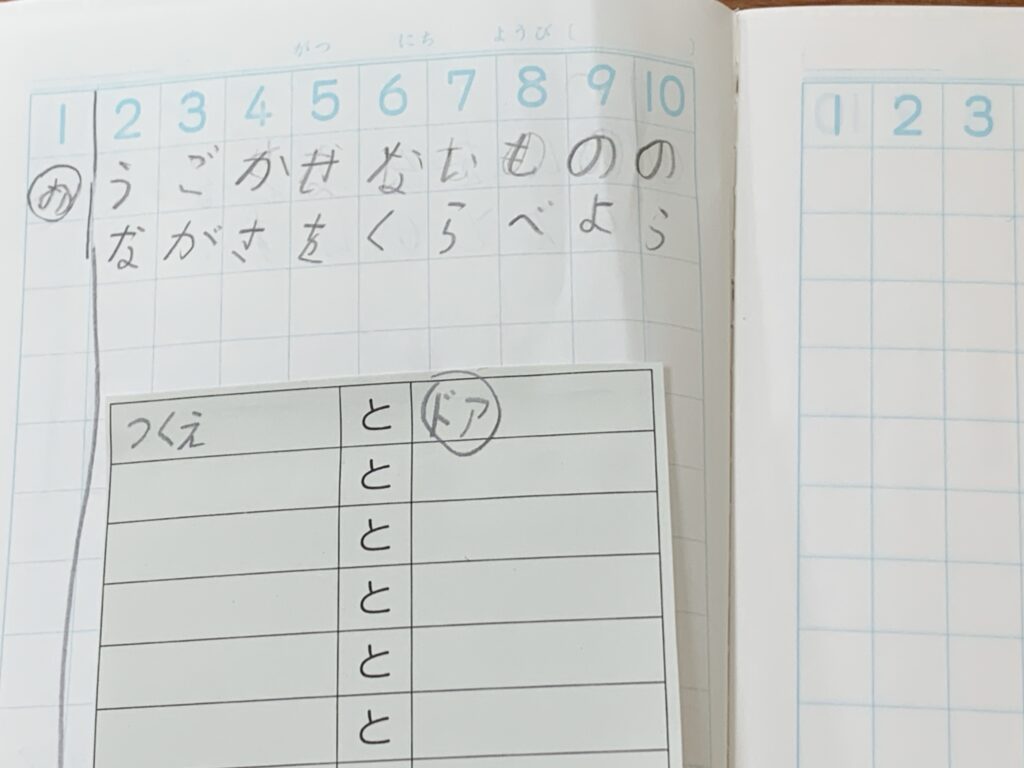 がつ にち ようび ( )
1 2 3 4 5 6 7 8 9 10
め うごかせないもの の
ながさを くらべよう
つくえ と ドア
と
と
と
と
と
1 2 3